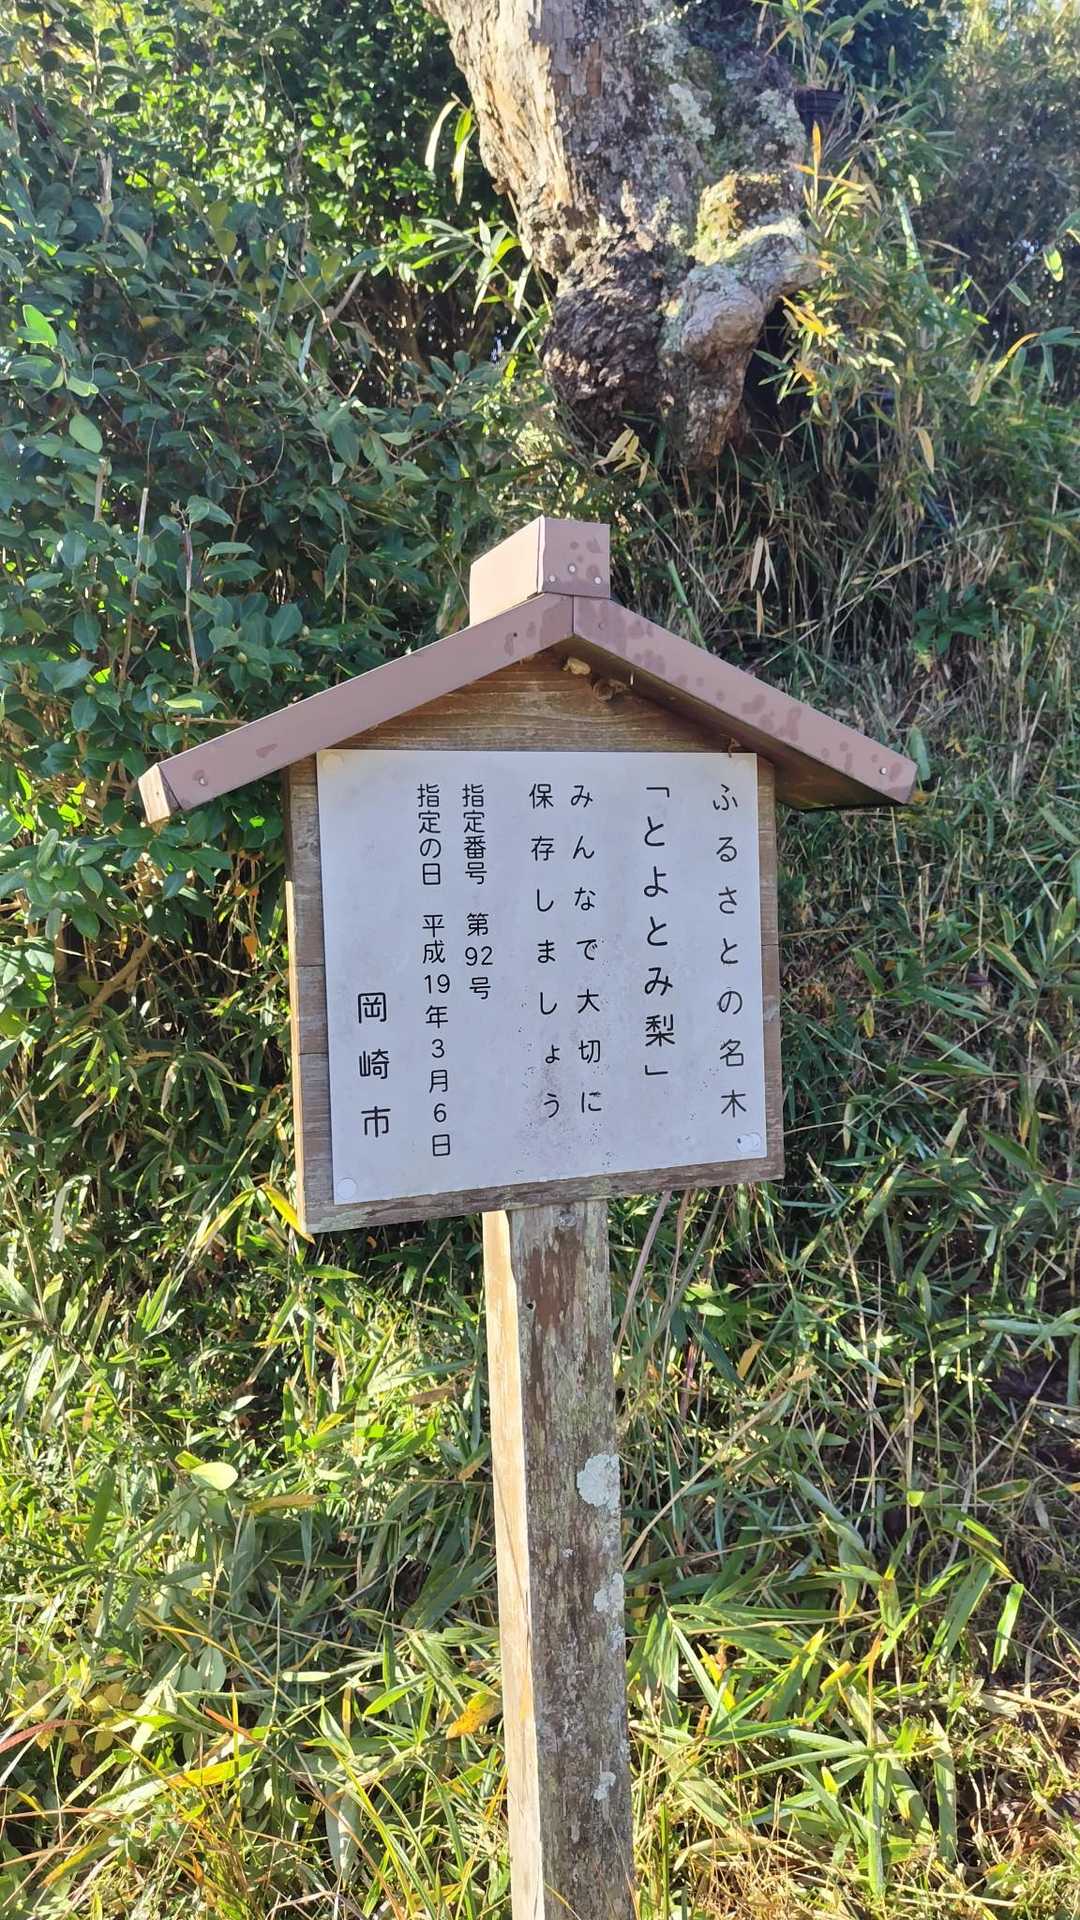 ふるさとの名木
「とよとみ梨」
みんなで大切に
保存しましょう
指定番号　第92号
指定の日　平成19年3月6日
岡崎市